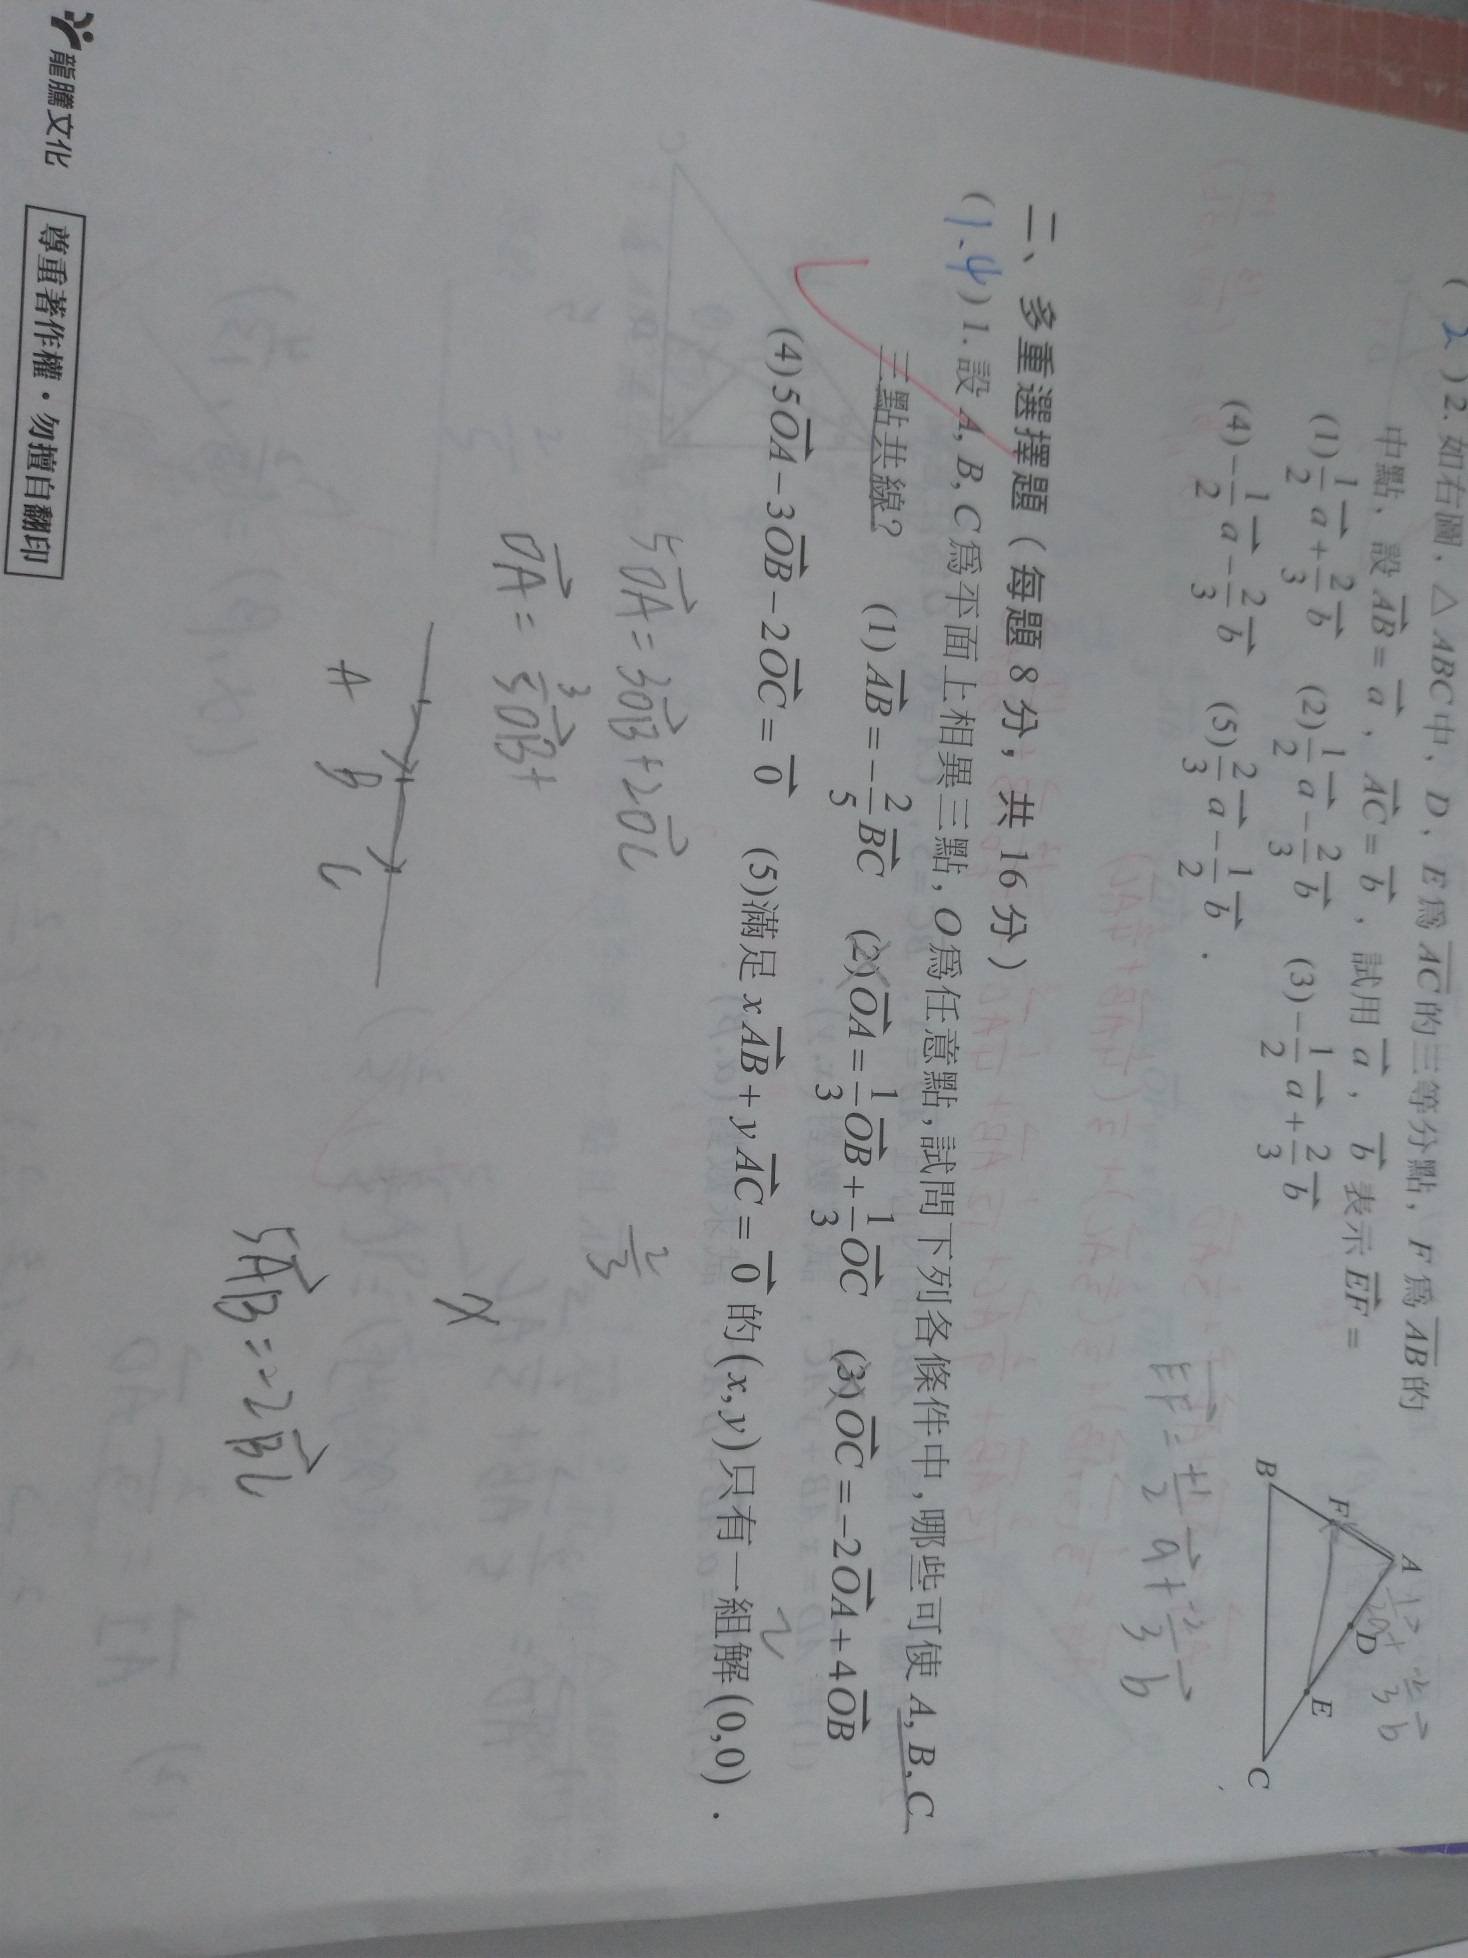 ( 2 ) 2. 如右圖，△ABC中，D、E為AC的三等分點，F為AB的
中點，設AB=a、AC=b，試用a，b表示EF=
(1) 1/2 a + 2/3 b (2) 1/2 a − 2/3 b (3) −1/2 a + 2/3 b
(4) −1/2 a − 2/3 b (5) 2/3 a − 1/2 b .
A
B
C
D
E
F
EF = +1/2 a + −2/3 b
二、多重選擇題 (每題 8 分，共 16 分)
(1、4) 1. 設A, B, C為平面上相異三點，O為任意點，試問下列各條件中，哪些可使A, B, C
三點共線？ (1) AB = −2/5 BC (2) OA = 1/3 OB + 1/3 OC (3) OC = −2OA + 4OB
(4) 5OA − 3OB − 2OC = 0 (5)滿足 xAB + yAC = 0 的(x, y)只有一組解(0,0) .
5OA = 3OB + 2OC
2/3
OA = 3/5 OB +
A B C
5AB = −2BC
龍騰文化
尊重著作權・勿擅自翻印